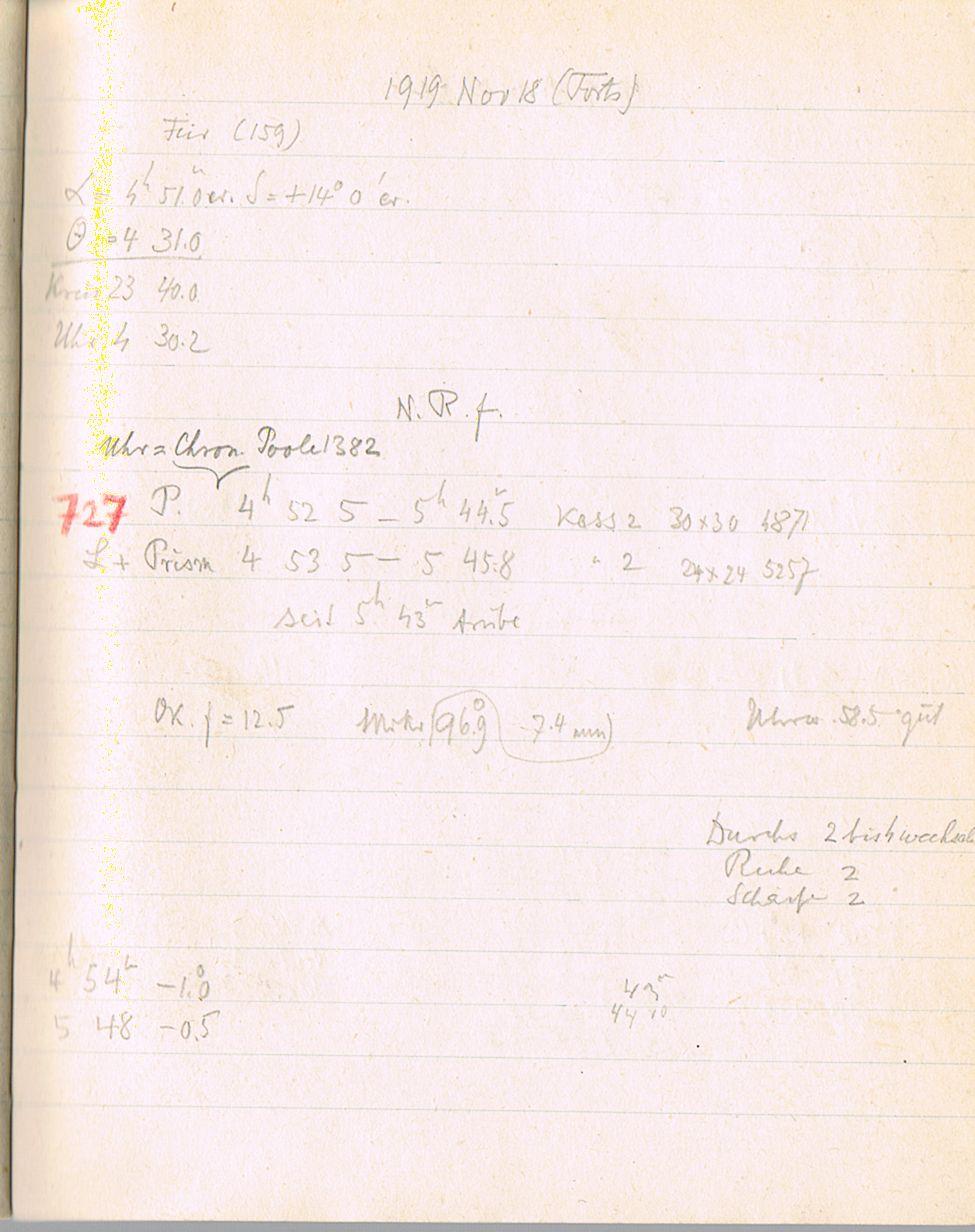 1919 Nov 18 (Forts)
Für (159)
α = 4ʰ 51.ᵐ0 er. δ = +14° 0′ er.
Θ = 4 31.0
Kreis 23 40.0
Uhr 4 30.2
N. R. f.
Uhr = Chron. Poole 1382
727 P. 4ʰ 52 5 – 5ʰ 44.ᵐ5 Kass 2 30×30 4871
L + Prism 4 53 5 – 5 45.8 " 2 24×24 5257
seit 5ʰ 43ᵐ trübe
OK. f = 12.5 Mikr (96.°9 7.4 mm) Uhrw. 58.5 gut
Durchs 2 bis 4 wechseln
Ruhe 2
Schärfe 2
4ʰ 54ᵐ –1.°0
5 48 –0.5
43ᵐ
44 10